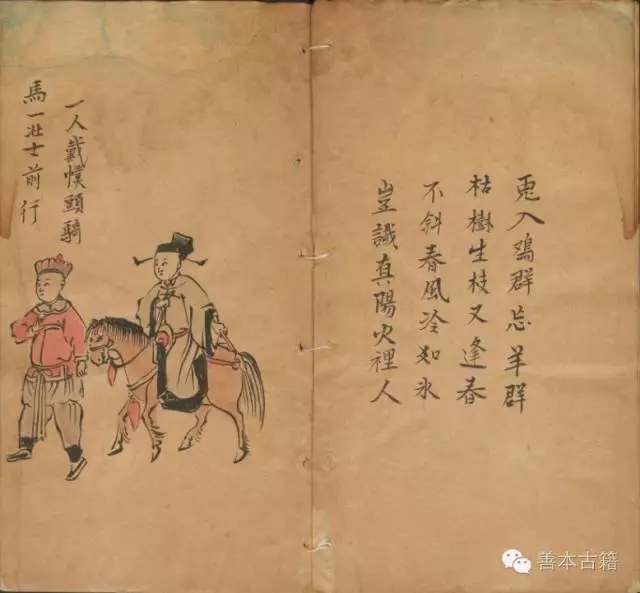 兎入群忘羊群
枯樹生枝又逢春
不斜春風冷如氷
豈識真陽火裡人
一人戴幞頭騎
馬一壯士前行
善本古籍